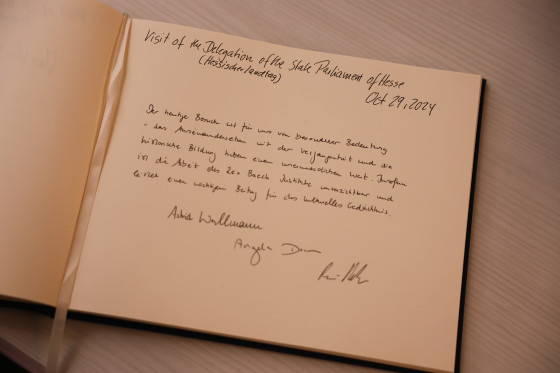 Visit of the Delegation of the State Parliament of Hesse
(Hessischer Landtag)
Oct 29, 2024
Der heutige Besuch ist für uns von besonderer Bedeutung
- das Auseinandersetzen mit der Vergangenheit und die
historische Bildung haben einen unermesslichen Wert. Insofern
ist die Arbeit des Leo Baeck Institute unverzichtbar und
leistet einen wichtigen Beitrag für das kulturelle Gedächtnis.
Astrid Wallmann
Angela Dorn